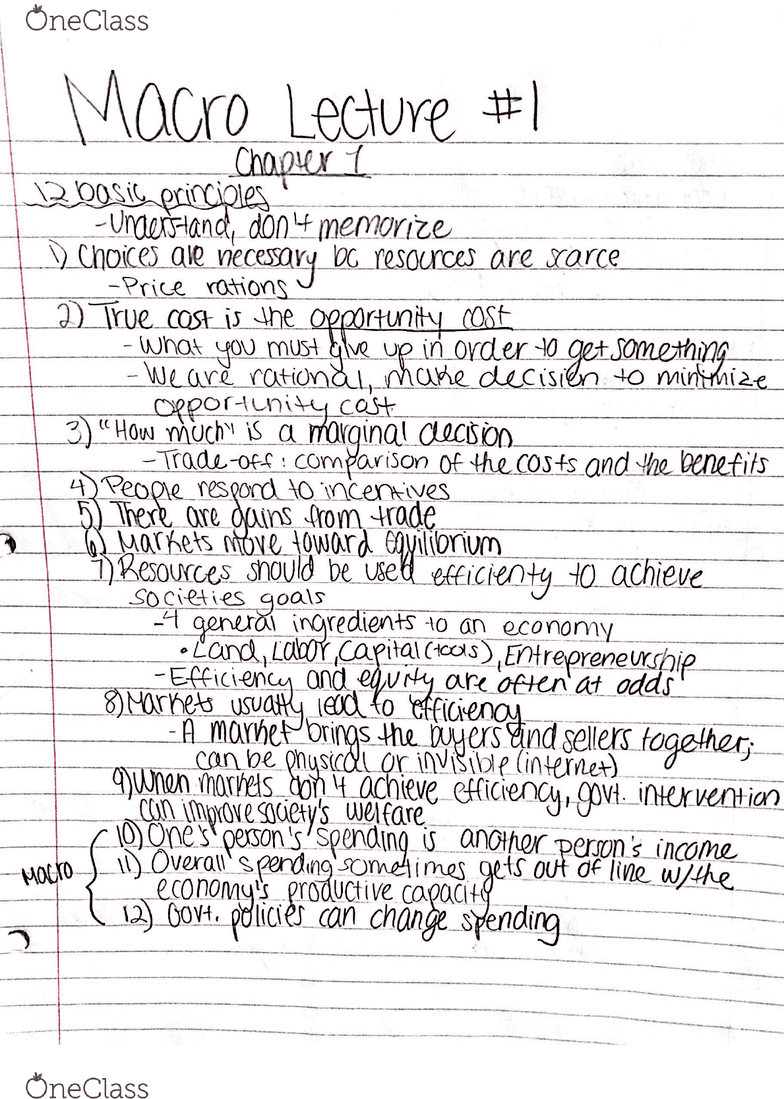 OneClass
Macro Lecture #1
Chapter 1
12 basic principles
-Understand, don't memorize
1) Choices are necessary bc resources are scarce
-Price rations
2) True cost is the opportunity cost
-What you must give up in order to get something
-We are rational, make decision to minimize
opportunity cost
3) "How much" is a marginal decision
-Trade-off: comparison of the costs and the benefits
4) People respond to incentives
5) There are gains from trade
6) Markets move toward Equilibrium
7) Resources should be used efficienty to achieve
societies goals
-4 general ingredients to an economy
•Land, Labor, Capital (tools), Entrepreneurship
-Efficiency and equity are often at odds
8) Markets usually lead to efficiency
-A market brings the buyers and sellers together;
can be physical or invisible (internet)
9) When markets don't achieve efficiency, govt. intervention
can improve society's welfare
10) One's person's spending is another person's income
Macro
11) Overall spending sometimes gets out of line w/the
economy's productive capacity
12) Govt. policies can change spending
OneClass